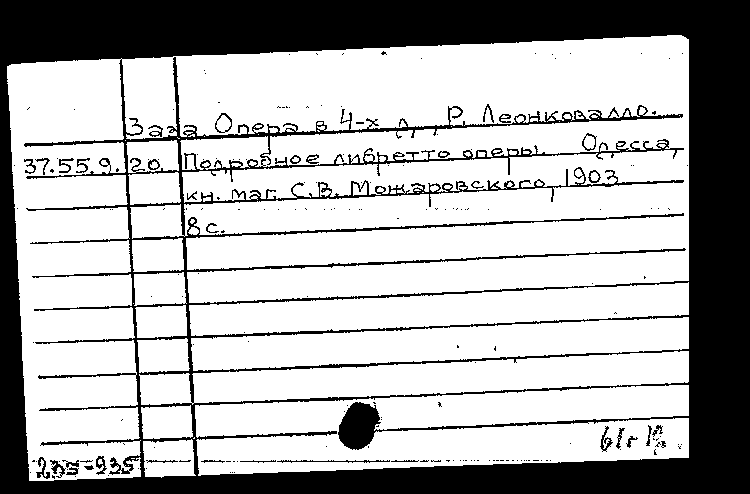 Заза Опера в 4-х д., Р. Леонковалло.
37.55.9.20. Подробное либретто оперы. Одесса,
кн. маг. С.В. Можаровского, 1903
8 с.
235-935